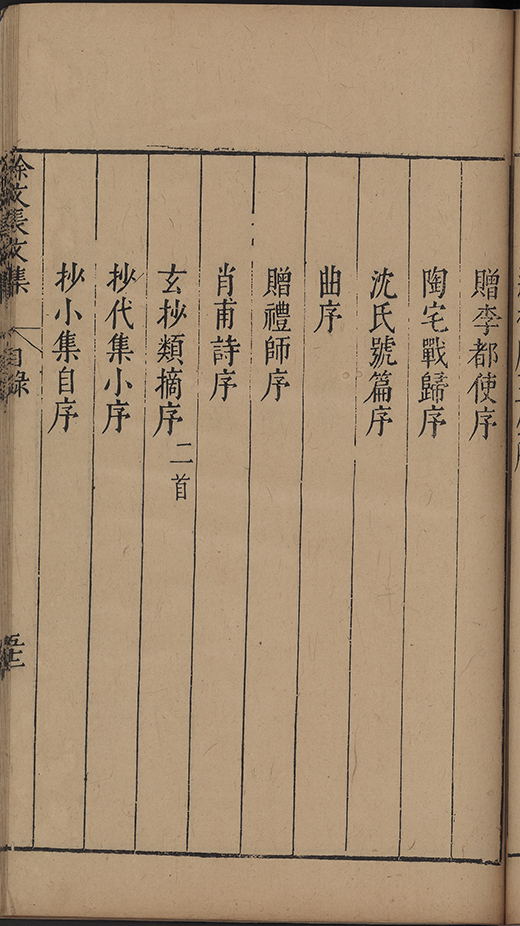 贈李都使序
陶宅戰歸序
沈氏號篇序
曲序
贈禮師序
肖甫詩序
玄抄類摘序二首
抄代集小序
抄小集自序
徐文長文集 目錄